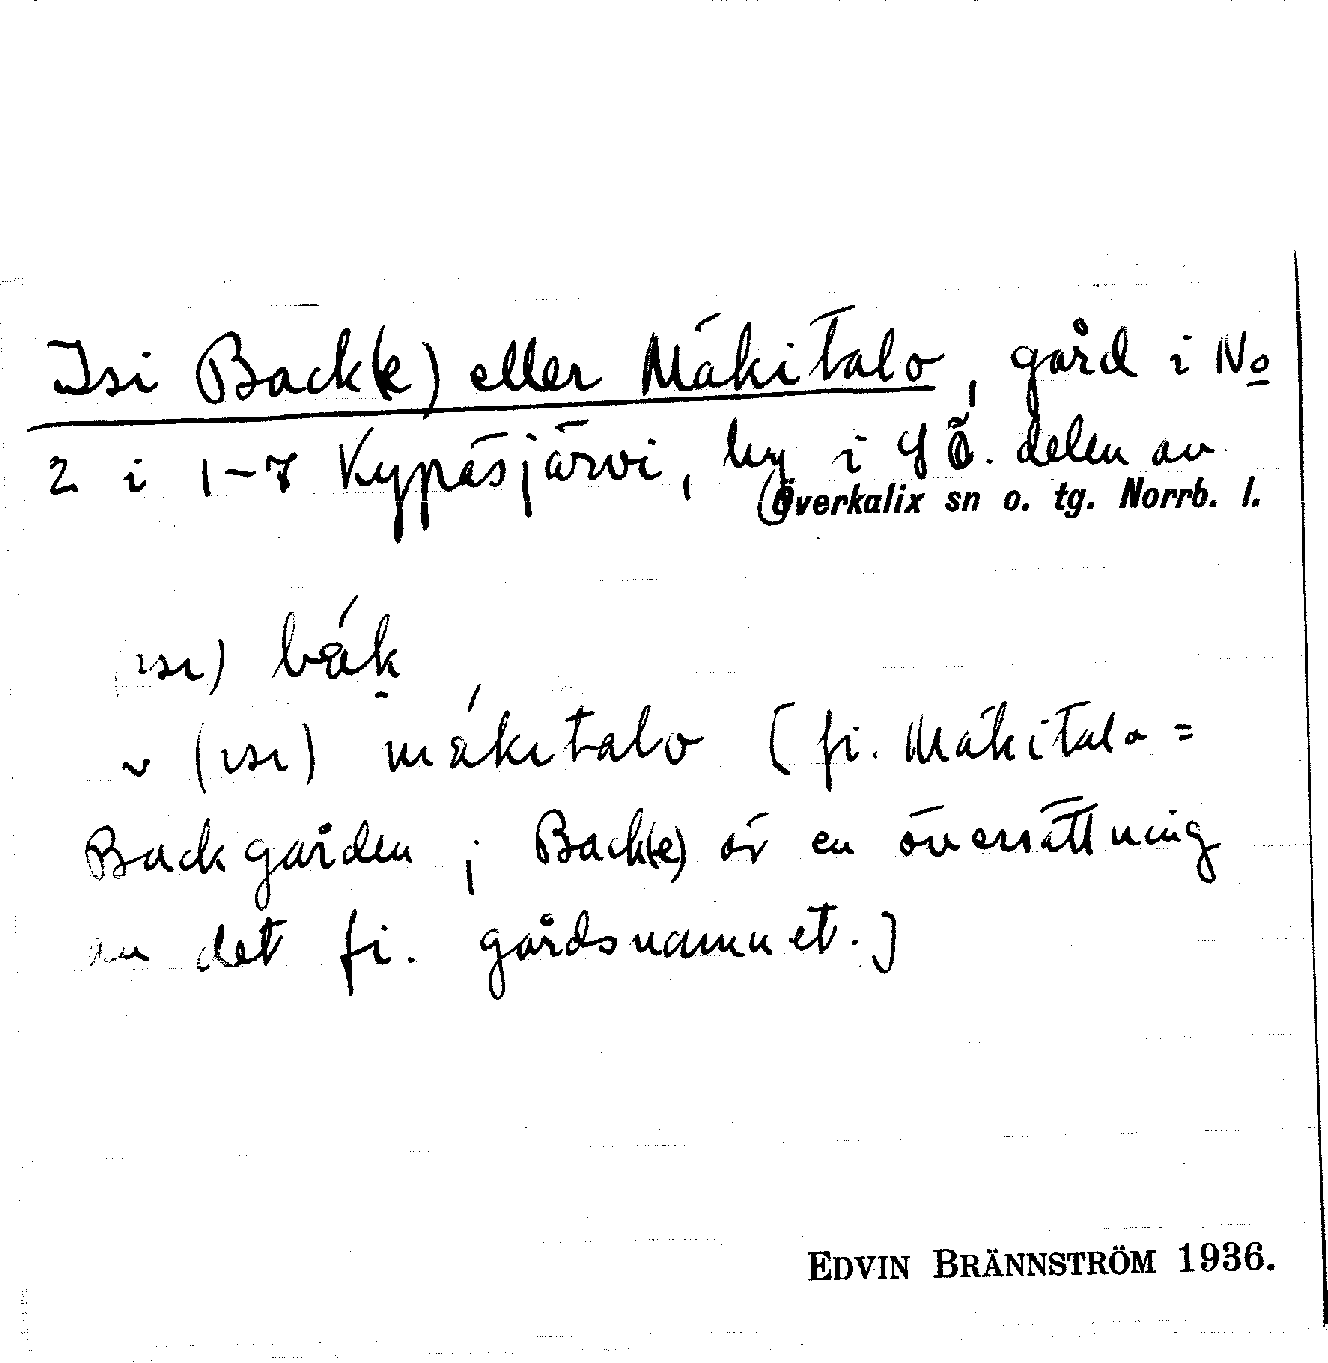 Isi Back(e) eller Mäkitalo, gård i No
2 i 1-7 Kypäsjärvi, by i SÖ. delen av
Överkalix sn o. tg. Norrb. l.
ısı) bák
~ (ısı) mákıtalo [fi. Mäkitalo =
Backgården; Back(e) är en översättning
av det fi. gårdsnamnet.]
EDVIN BRÄNNSTRÖM 1936.